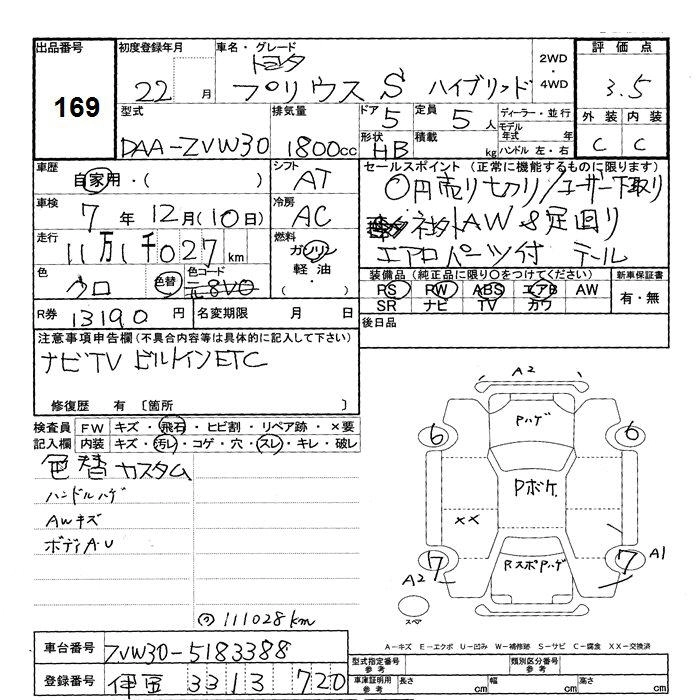 出品番号 初度登録年月 車名・グレード 2WD・4WD 評価点
169 22 月 トヨタ プリウス S ハイブリッド 3.5
型式 排気量 ドア 定員 ディーラー・並行 外装 内装
DAA-ZVW30 1800cc 5 5人 モデル年式 年 C C
形状 HB 積載 kg ハンドル 左・右
車歴 自家用・( ) シフト AT セールスポイント(正常に機能するものに限ります)
〇円売り切り/ユーザー下取り
車検 7年12月(10日) 冷房 AC
AW 足回り
走行 11万1千027km 燃料 ガソリン 軽油・( )
エアロパーツ付 テール
色 クロ 色替 色コード 元8V0
装備品(純正品に限り〇をつけてください) 新車保証書
RS RW ABS エアB AW 有・無
SR ナビ TV カワ
R券 13190円 名変期限 月 日
後日品
注意事項申告欄(不具合内容等は具体的に記入して下さい)
ナビTV ビルトインETC
修復歴 有 〔箇所 〕
検査員記入欄 FW キズ・飛石・ヒビ割・リペア跡・×要
内装 キズ・汚レ・コゲ・穴・スレ・キレ・破レ
色替カスタム
ハンドルハゲ
AWキズ
ボディA・U
111028km
A2
Pハゲ
6 6
Pボケ
XX
7 7 A1
RスポPハゲ
A2
スペア
A-キズ E-エクボ U-凹み W-補修跡 S-サビ C-腐食 XX-交換済
車台番号 ZVW30-5183388
型式指定番号 参考 類別区分番号 参考
登録番号 伊豆 331 3 720
車庫証明用 参考 長さ cm 幅 cm 高さ cm